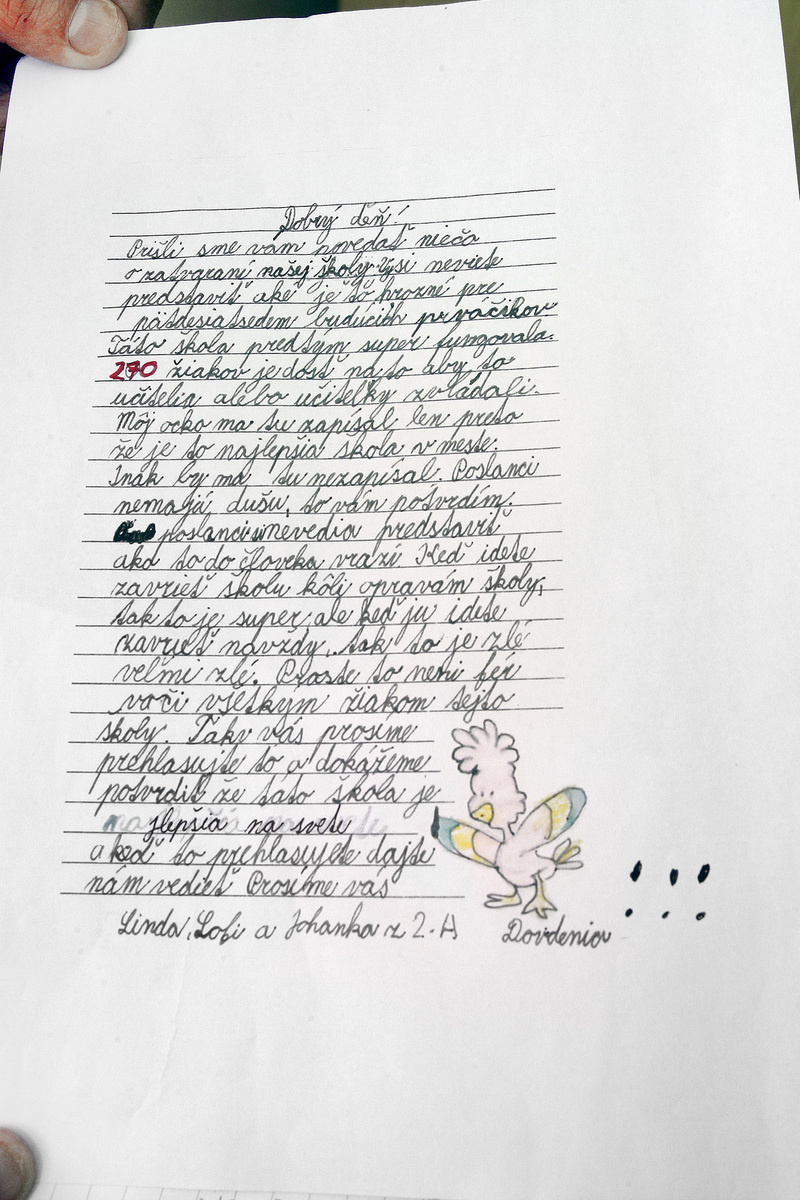 Dobrý deň!
Prišli sme vám povedať niečo
o zatvraraní našej školy Vysi neviete
predstaviť aké je to hrozné pre
pätdesiatsedem buducich prváčikov
Táto škola predtým super fungovala.
270 žiakov je dosť na to aby to
učitelia alebo učiteľky zvládali.
Môj ocko ma tu zapísal len preto
že je to najlepšia škola v meste.
Inak by ma tu nezapísal. Poslanci
nemajú dušu, to vám potvrdím.
poslanci si nevedia predstaviť
ako to do človeka vrazí. Keď idete
zavrieť školu kôli opravám školy,
tak to je super, ale keď ju idete
zavrieť navždy, tak to je zlé
veľmi zlé. Proste to neni fér
voči všetkým žiakom tejto
školy. Takv vás prosíme
prehlasujte to a dokážeme
potvrdiť že tato škola je
jlepšia na svete
a keď to prehlasujete dajte
nám vedieť Prosíme vás
Linda, Sofi a Johanka z 2. A Dovdenia !!!